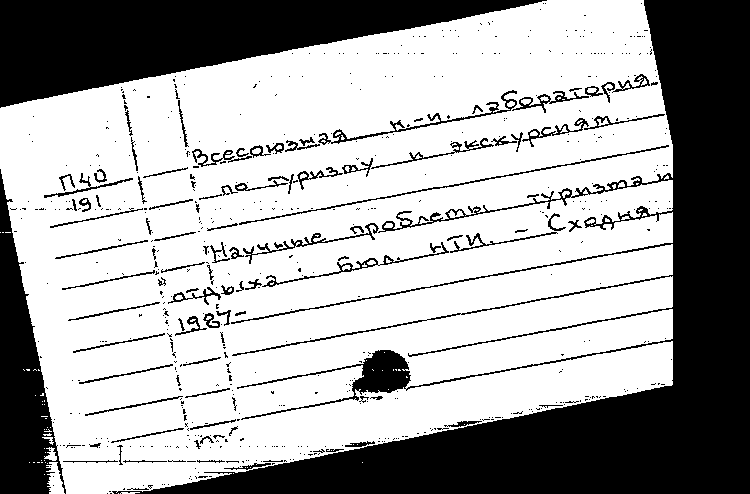 Всесоюзная н.-и. лаборатория
П40
191
по туризму и экскурсиям.
Научные проблемы туризма и
отдыха : Бюл. НТИ. - Сходня,
1987-